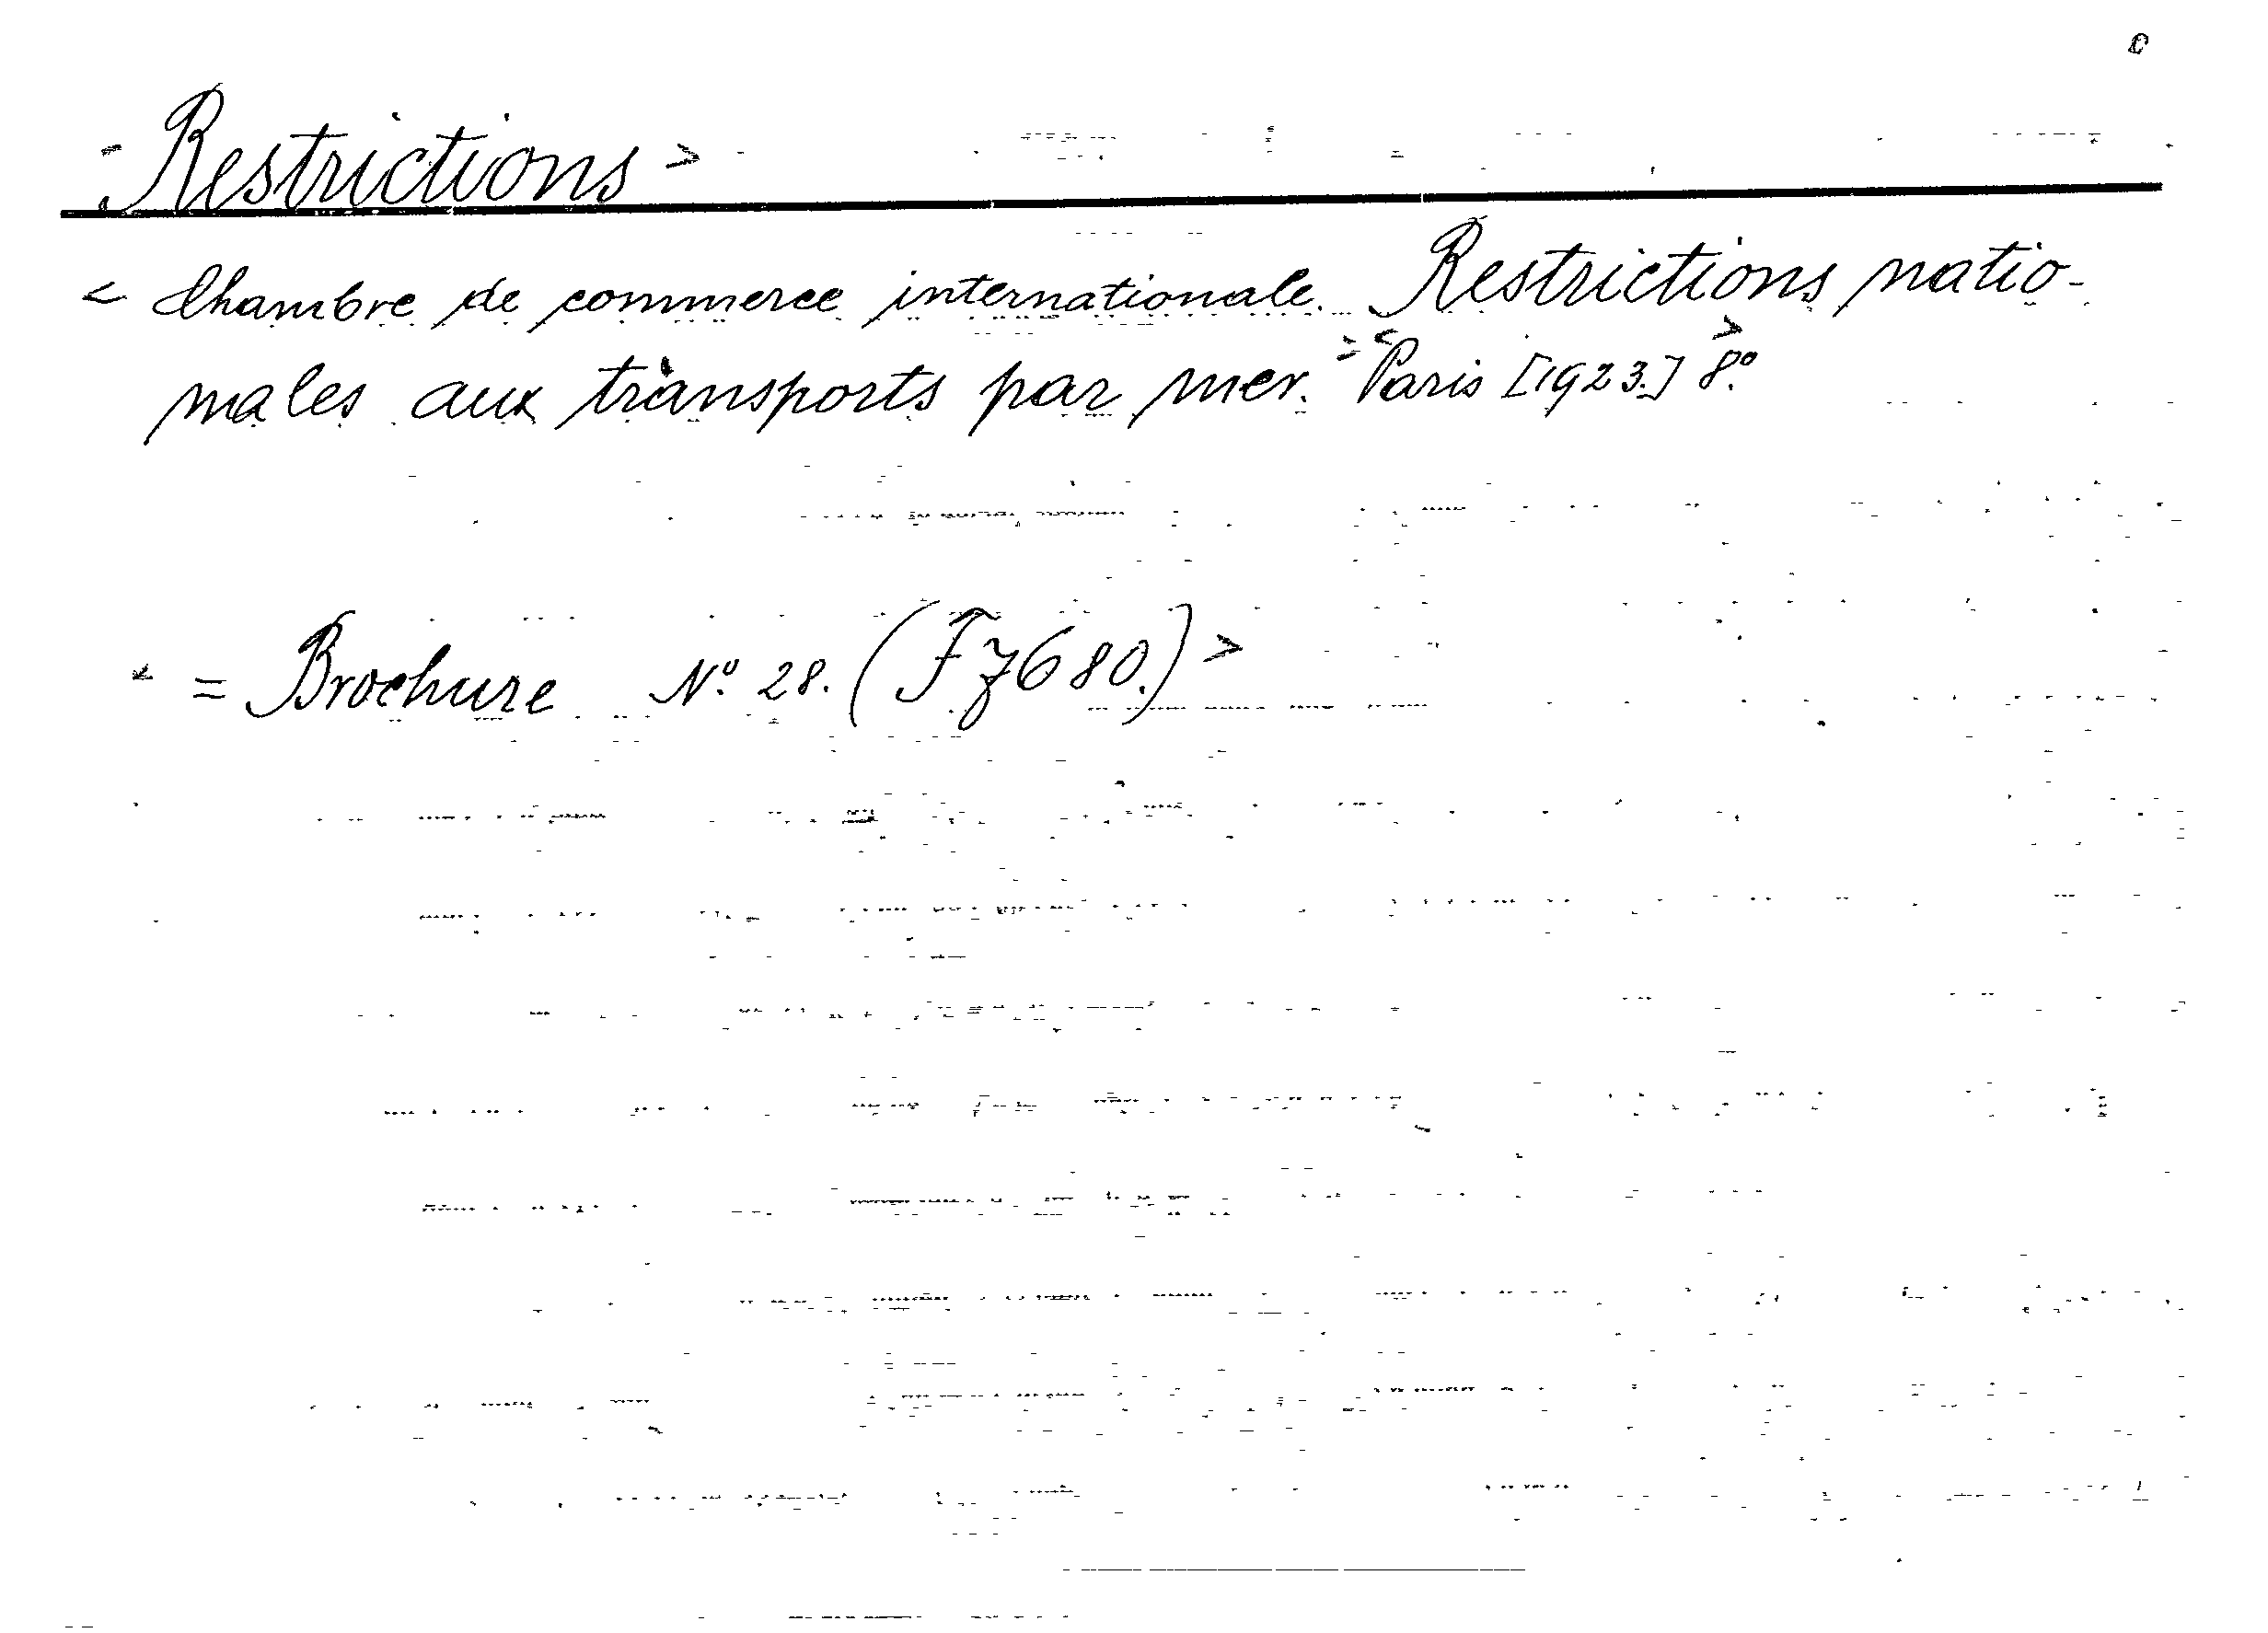 < Restrictions >
< Chambre de commerce internationale. Restrictions natio-
nales aux transports par mer. = < Paris [1923.] 8.º >
< = Brochure Nº. 28. (Fz 680.) >